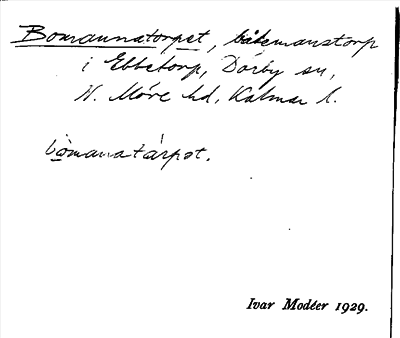 Bomannatorpet, båtsmanstorp
i Ebbetorp, Dörby sn,
N. Möre hd, Kalmar l.
bòmanatárpot.
Ivar Modéer 1929.